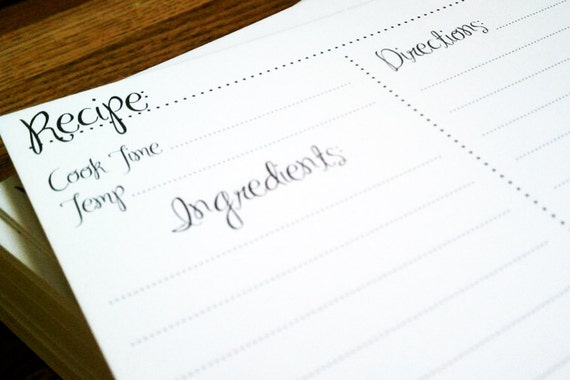 Recipe:
Cook Time
Temp
Ingredients:
Directions: